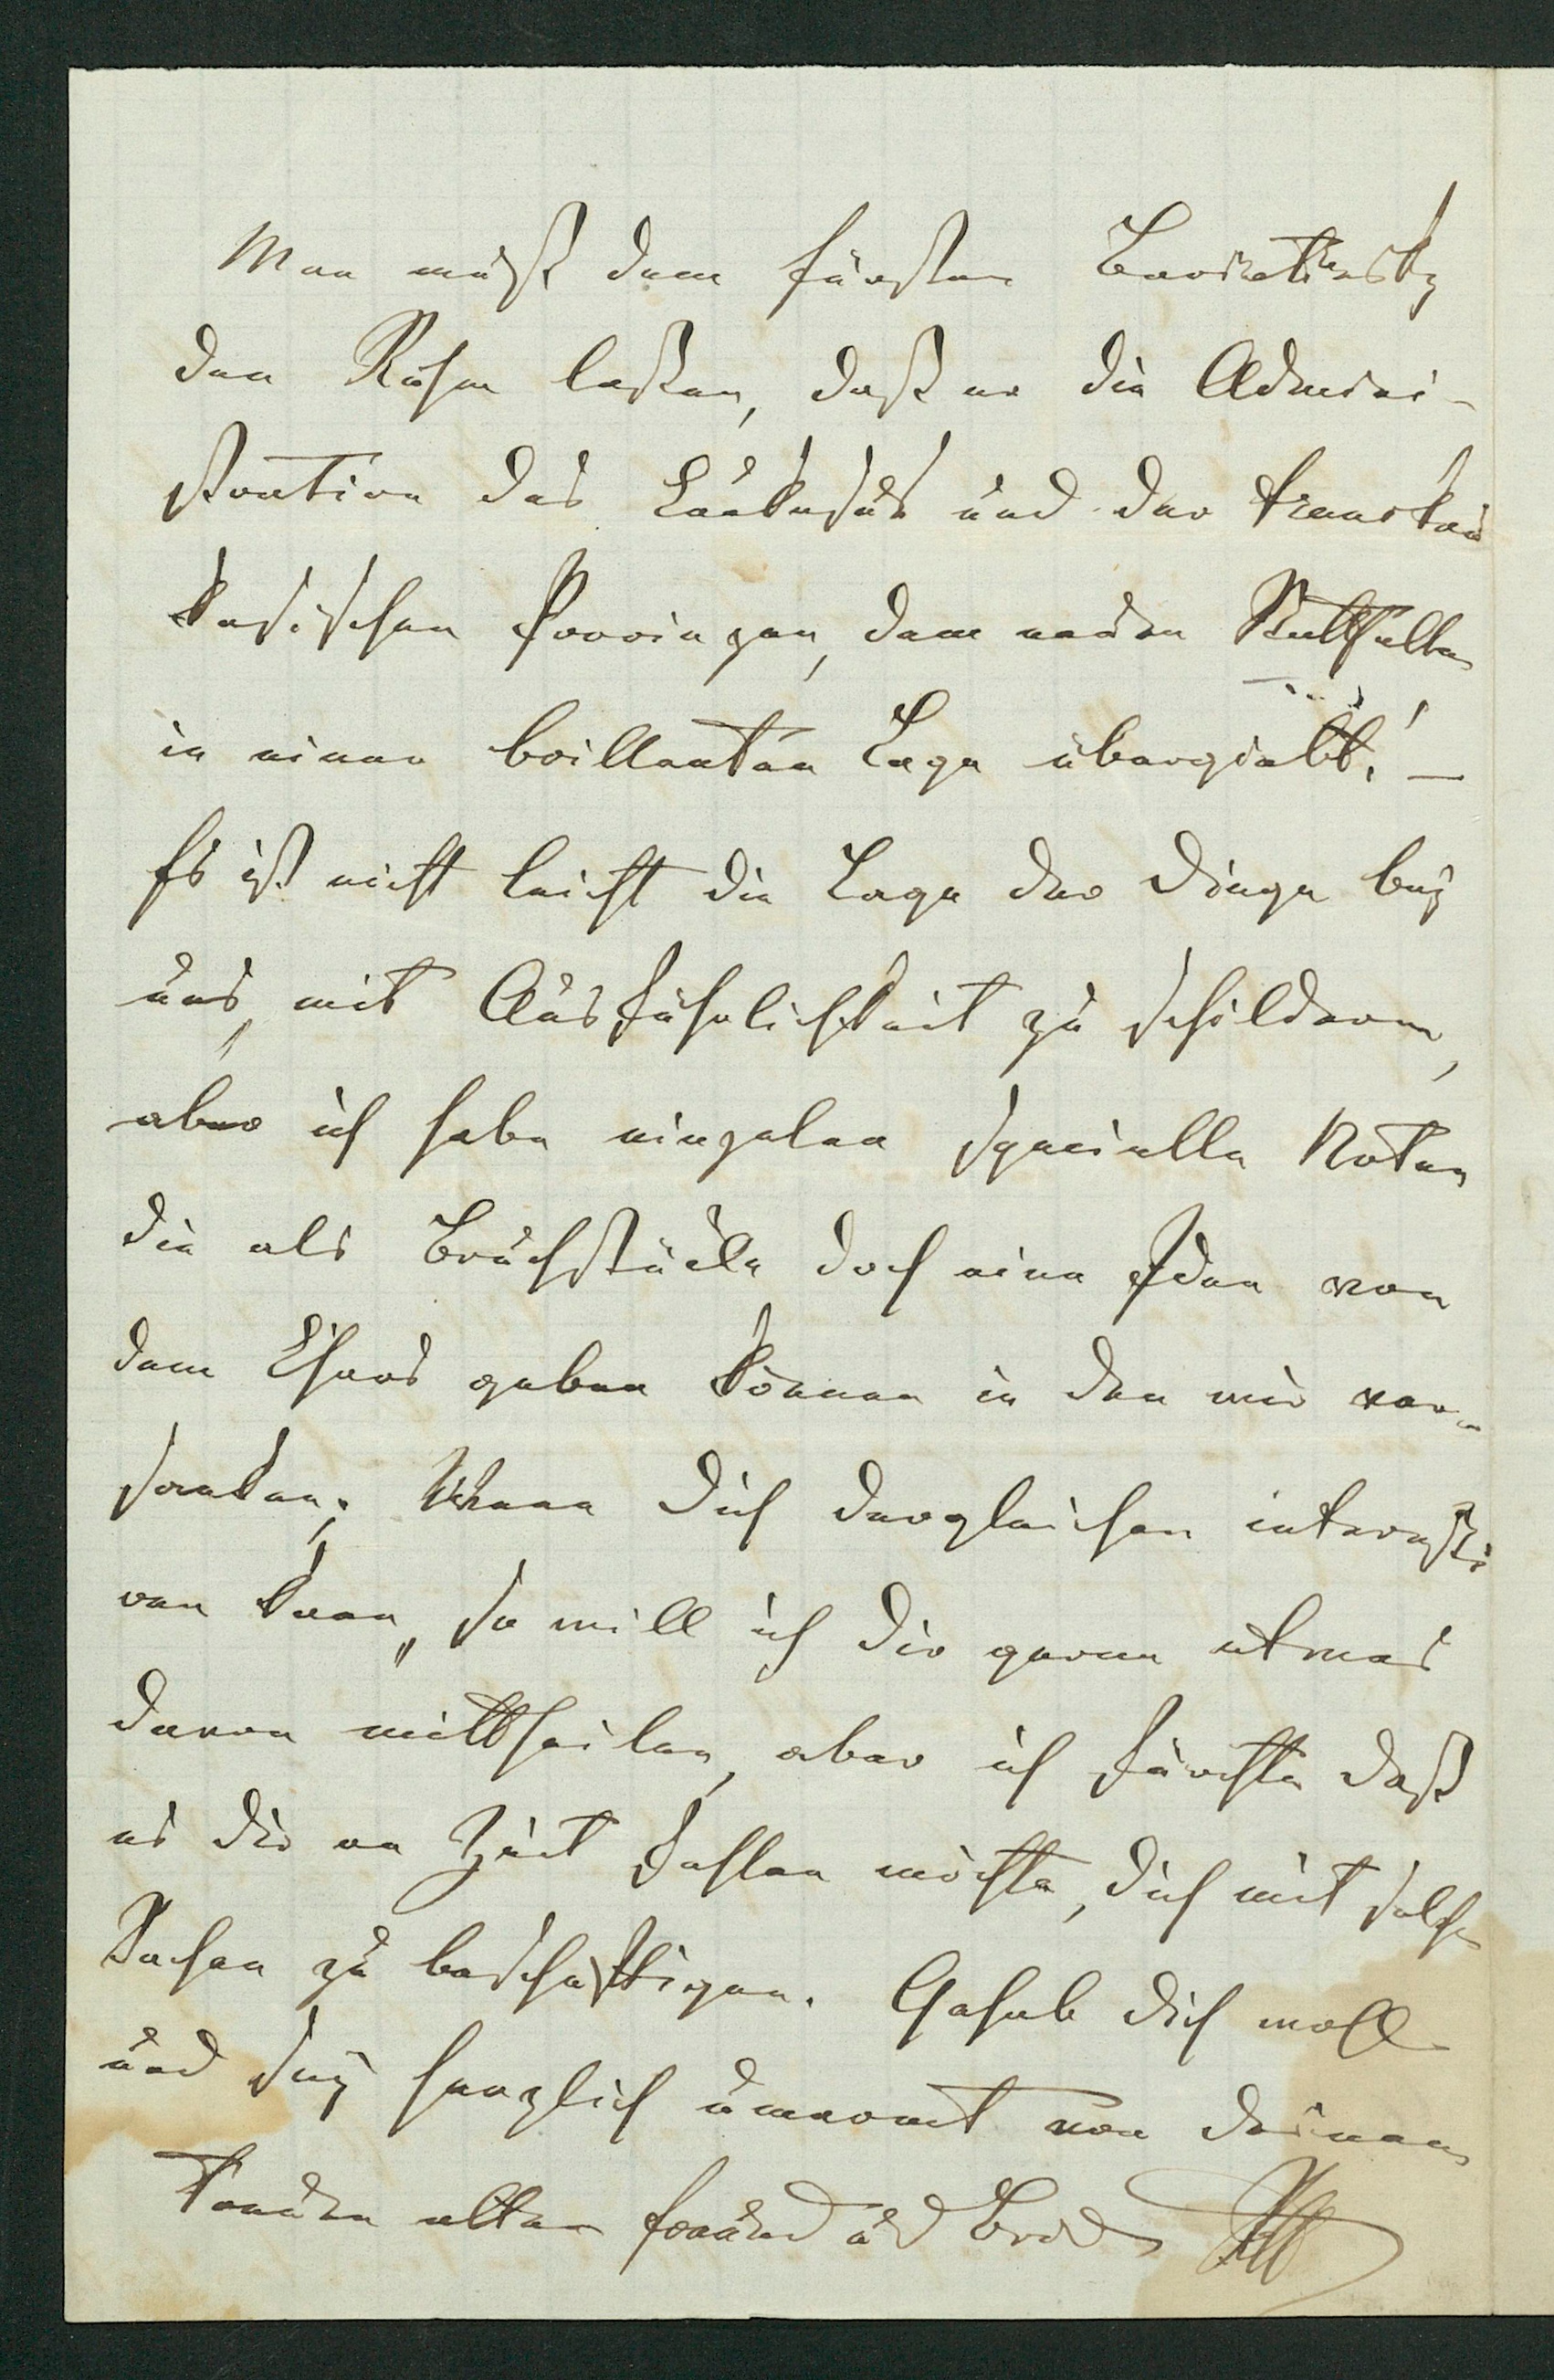 Man muß dem Fürsten Bariatinsky
den Ruhm laßen, daß er die Admini-
stration des Caukasus und der transkau
kasischen Provinzen, dem neuen Statthalter
in einer brillanten Lage übergiebt! —
Es ist nicht leicht die Lage der Dinge bey
uns, mit Ausführlichkeit zu schildern,
aber ich habe einzelne specielle Noten
die als Bruchstücke doch eine Idee von
dem Chaos geben können in den wir ver-
sanken; Wenn Dich dergleichen interessi
ren kann, so will ich Dir gerne etwas
davon mittheilen, aber ich fürchte daß
es Dir an Zeit fehlen möchte, Dich mit solchen
Sachen zu beschäftigen. Gehab Dich wohl
und sey herzlich umarmt von Deinem
treuen alten Freund und Bruder